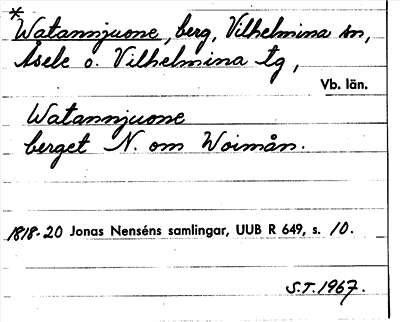 *
Watannjuone, berg, Vilhelmina sn,
Åsele o. Vilhelmina tg,
Vb. län.
Watannjuone
berget N. om Woimån.
1818-20 Jonas Nenséns samlingar, UUB R 649, s. 10.
S.T. 1967.